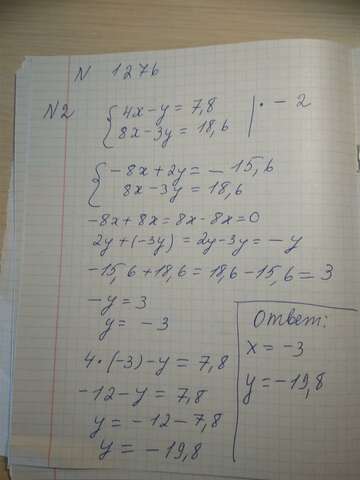 N 1276
N2 { 4x - y = 7,8 | · - 2
8x - 3y = 18,6
{ - 8x + 2y = - 15,6
8x - 3y = 18,6
-8x + 8x = 8x - 8x = 0
2y + (-3y) = 2y - 3y = -y
-15,6 + 18,6 = 18,6 - 15,6 = 3
-y = 3
y = -3
4 · (-3) - y = 7,8
-12 - y = 7,8
y = -12 - 7,8
y = -19,8
Ответ:
x = -3
y = -19,8